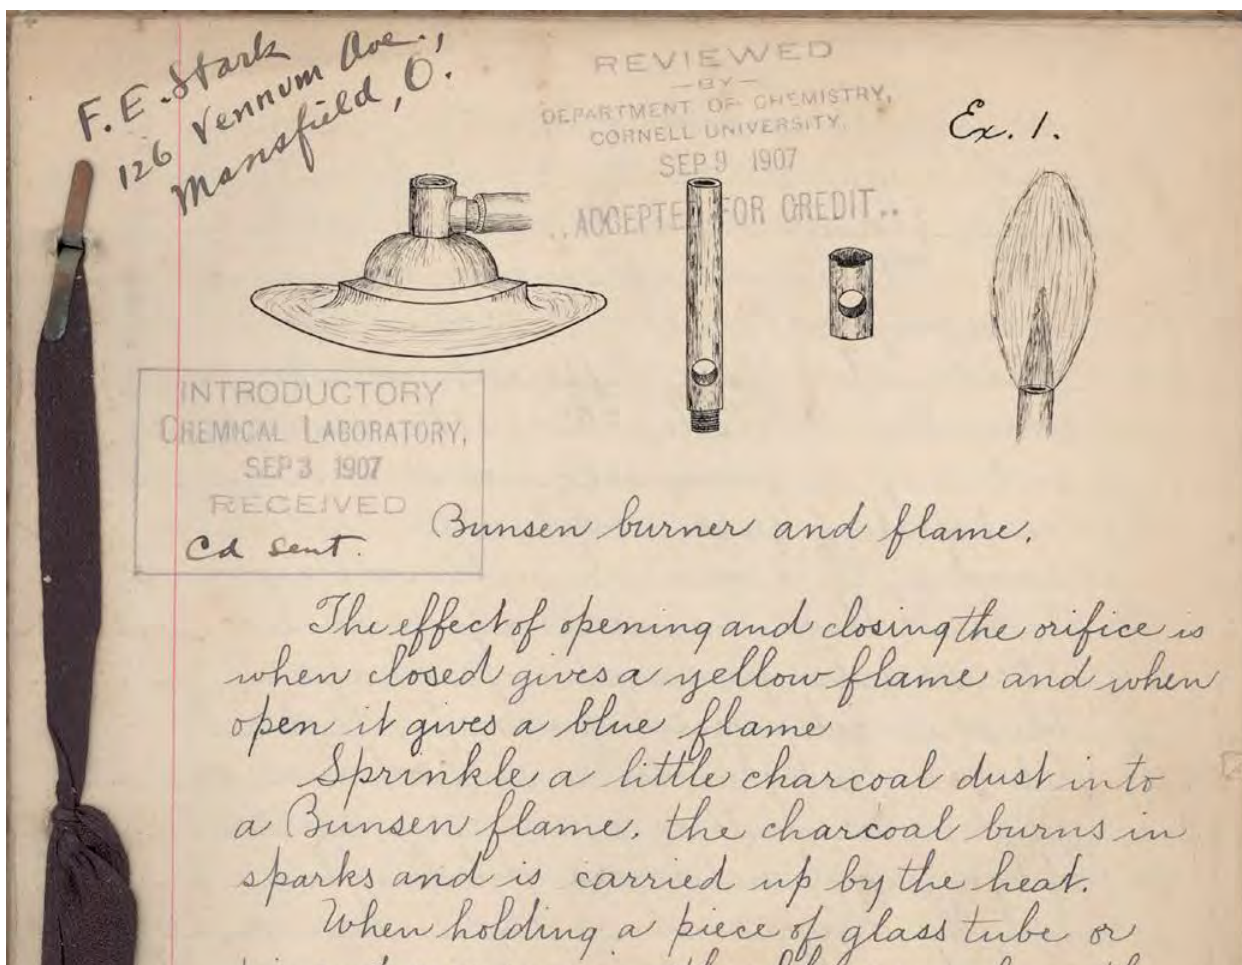 F. E. Stark
126 Vennum Ave.,
Mansfield, O.
REVIEWED
—BY—
DEPARTMENT OF CHEMISTRY,
CORNELL UNIVERSITY,
SEP 9 1907
..ACCEPTED FOR CREDIT..
Ex. 1.
INTRODUCTORY
CHEMICAL LABORATORY,
SEP 3 1907
RECEIVED
Cd sent.
Bunsen burner and flame.
The effect of opening and closing the orifice is
when closed gives a yellow flame and when
open it gives a blue flame
Sprinkle a little charcoal dust into
a Bunsen flame, the charcoal burns in
sparks and is carried up by the heat.
When holding a piece of glass tube or